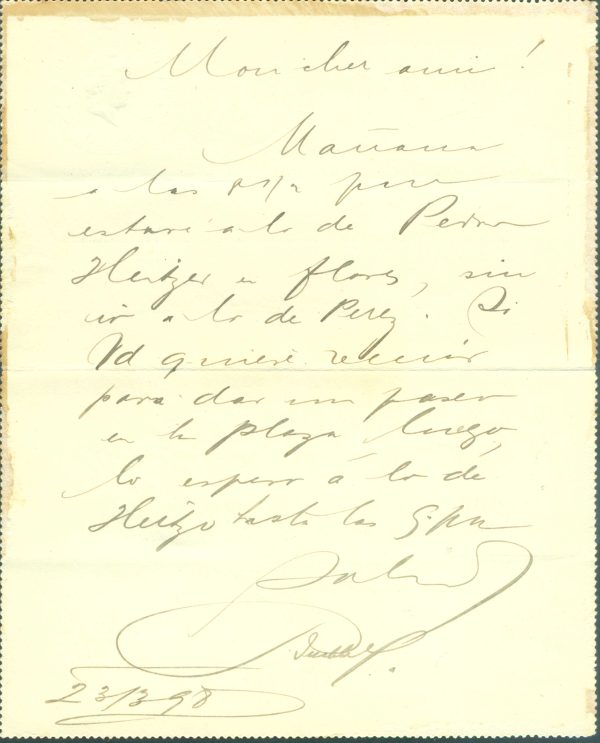 Mon cher ami!
Mañana
a las para
estaré a lo de Pedro
Heitzer en Flores, sin
ir a lo de Perez. Si
Vd quiere venir
para dar un paseo
en la plaza luego,
lo espero á lo de
hasta las 9. pm
Salud
23/3 98